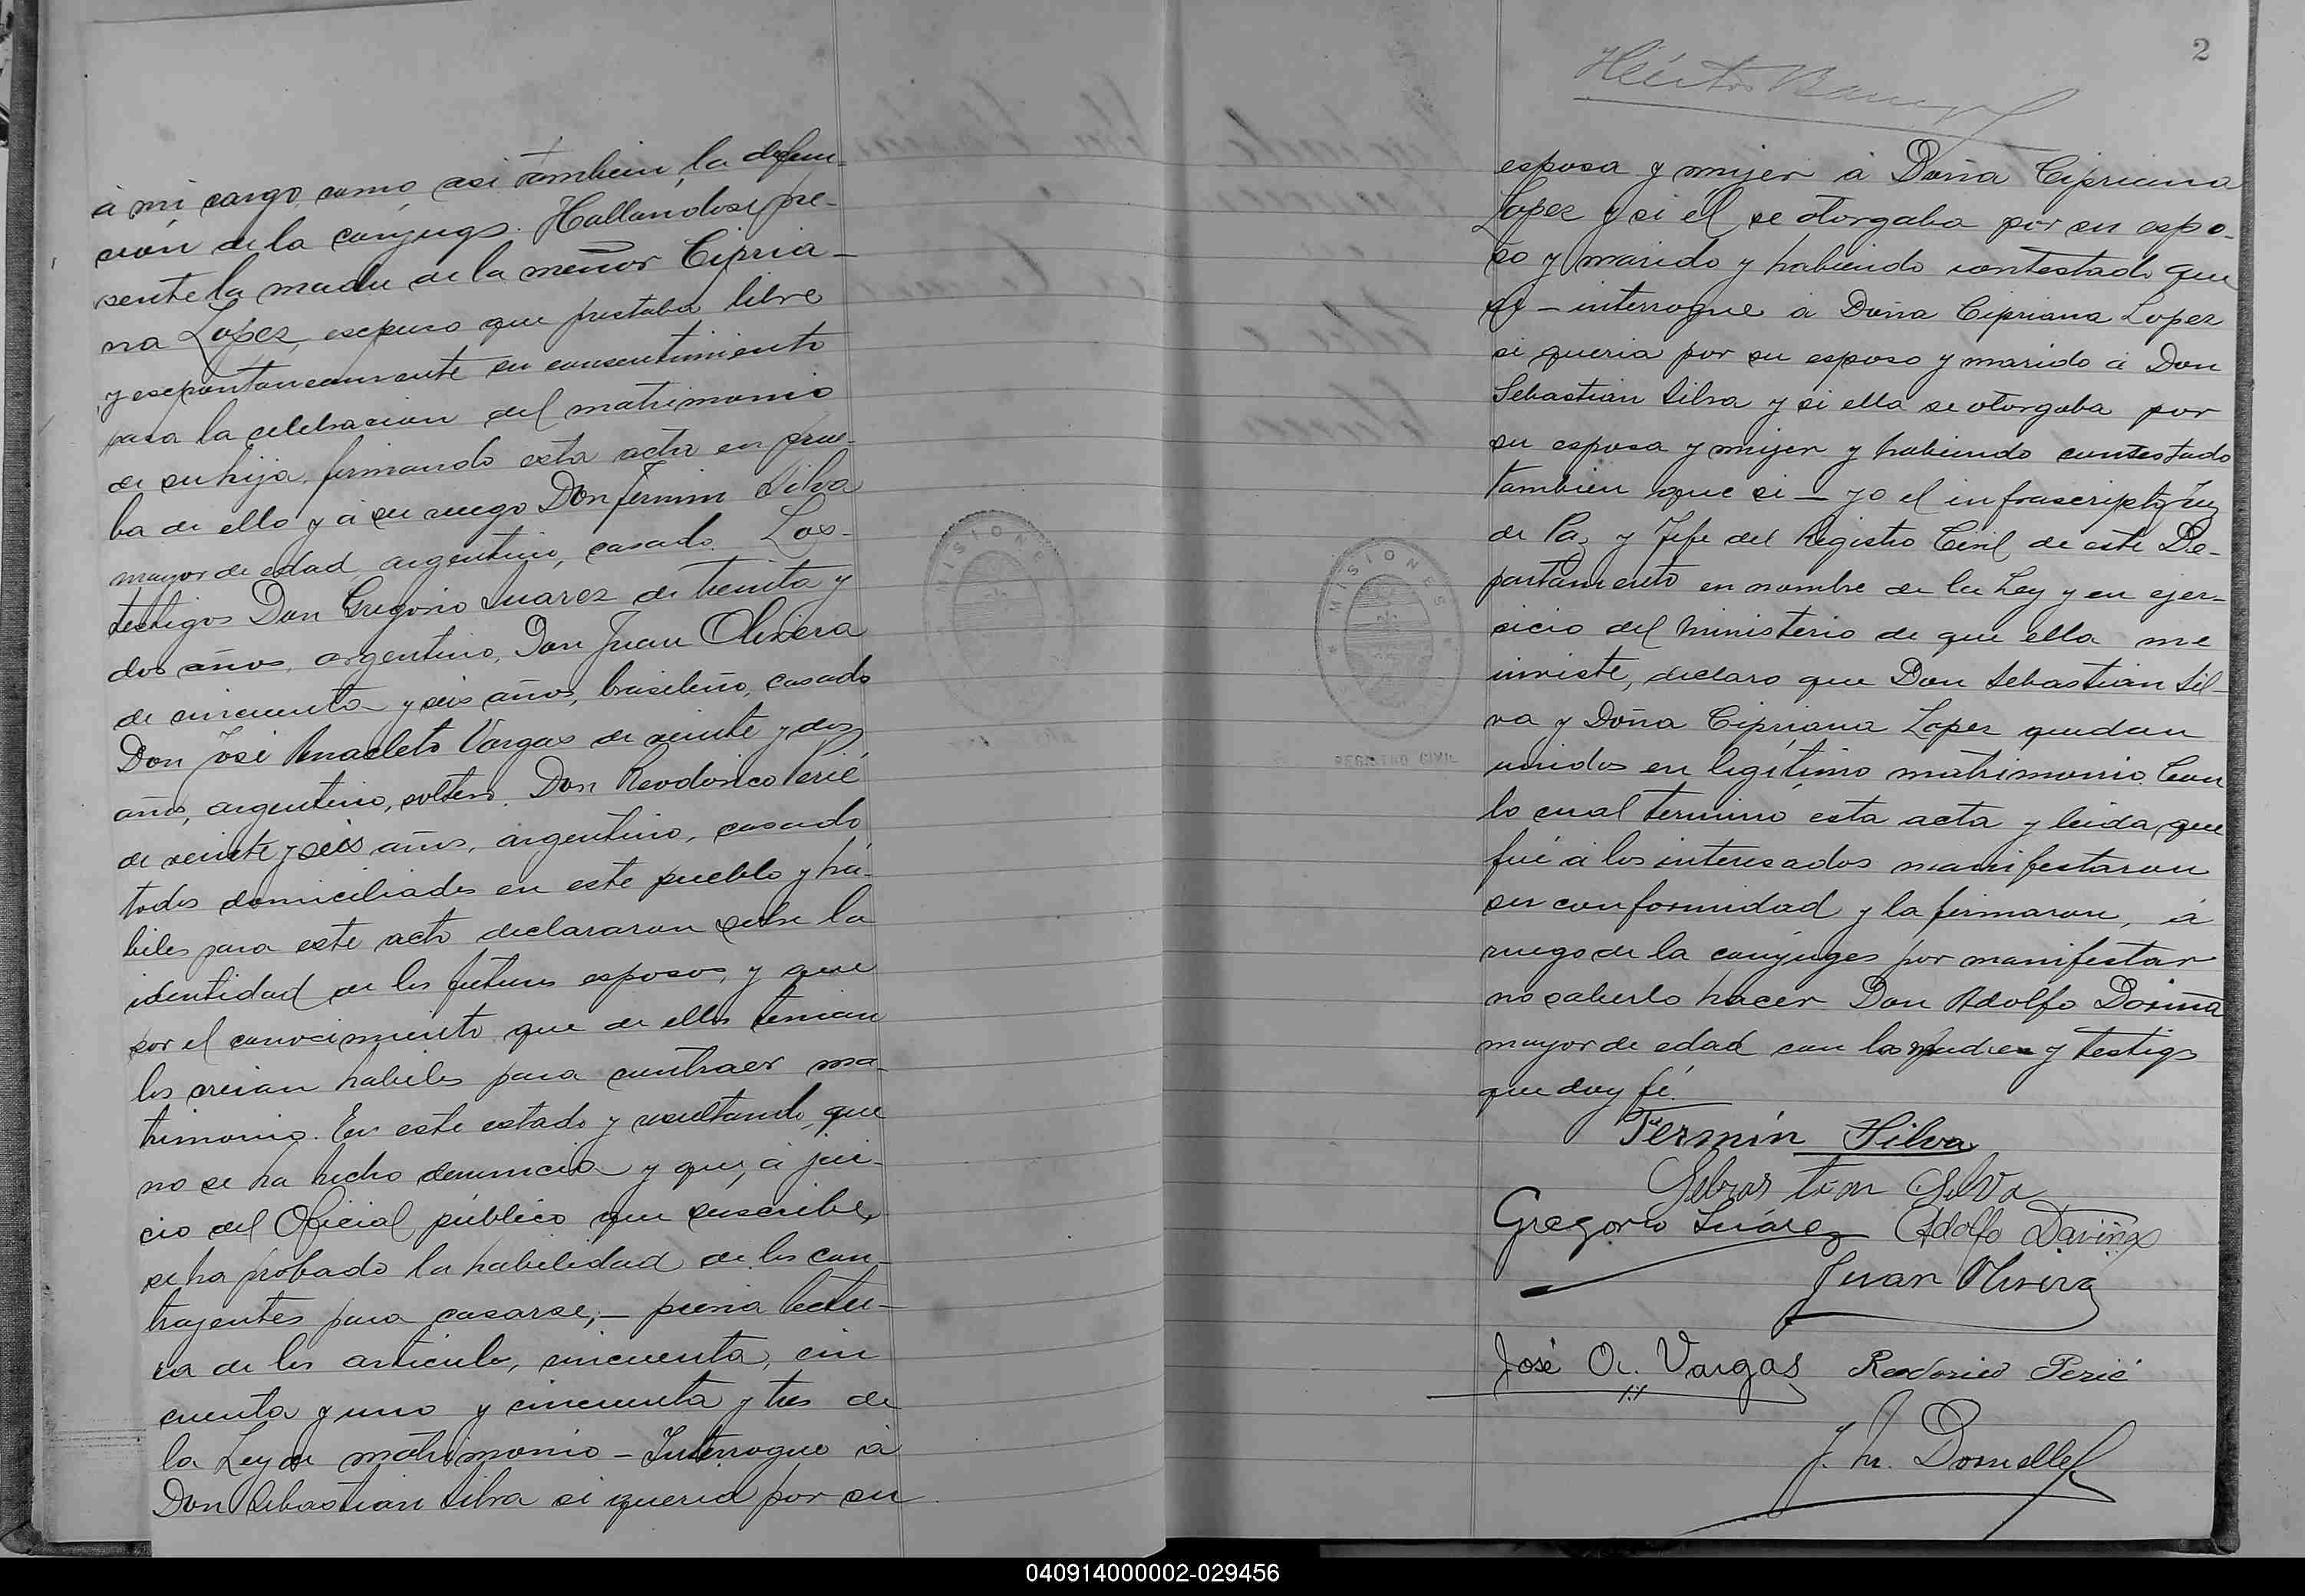 à mi cargo, como, asi tambien, la defun-
ción de la conjugs. Hallandose pre-
sente la madre de la menor Cipria-
na Lopez, escpuso que prestaba libre
y escpontaneamente su consentimiento
para la celebracion del matrimonio
de su hija, firmando esta acta en prue-
ba de ello y à su ruego Don Fermin Silva
mayor de edad, argentino, casado. Los
testigos Don Gregorio Suarez de treinta y
dos años, argentino, Don Juan Olivera
de cincuenta y seis años, brasileño, casado
Don José Anacleto Vargas de veinte y dos
años, argentino, soltero. Don Reodorico Perié
de veinte y seis años, argentino, casado,
todos domiciliados en este pueblo y há-
biles para este acto declararon sobre la
identidad de los futuros esposos, y que
por el conocimiento que de ellos tenian
los creian habiles para contraer ma-
trimonio. En este estado y resultando, que
no se ha hecho denuncia y que, à jui-
cio del Oficial público que suscribe,
se ha probado la habilidad de los con-
trayentes para casarse, — previa lectu-
ra de los articulos, cincuenta, cin
cuenta y uno y cincuenta y tres de
la Ley de matrimonio — Interrogue à
Don Sebastian Silva si queria por su
2
esposa y mujer à Doña Cipriana
Lopez y si el se otorgaba por su espo-
so y marido y habiendo contestado que
si — interrogue à Doña Cipriana Lopez
si queria por su esposo y marido à Don
Sebastian Silva y si ella se otorgaba por
su esposa y mujer y habiendo contestado
tambien que si — yo el infrascripto Juez
de Paz y Jefe del Registro Civil de este De-
partamento en nombre de la Ley y en ejer-
sicio del ministerio de que ella me
inviste, declaro que Don Sebastian Sil-
va y Doña Cipriana Lopez quedan
unidos en legítimo matrimonio. Con
lo cual terminó esta acta y leida, que
fué à los interesados manifestaron
su conformidad y la firmaron, à
ruego de la conjuges por manifestar
no saberlo hacer Don Adolfo Daviña
mayor de edad con la madre y testigs
que doy fé.
Fermin Silva
Sebas tian Silva
Gregorio Suárez Adolfo Daviña
Juan Olivera
José A. Vargas Reodorico Perié
MISIONES
REGISTRO CIVIL
040914000002-029456